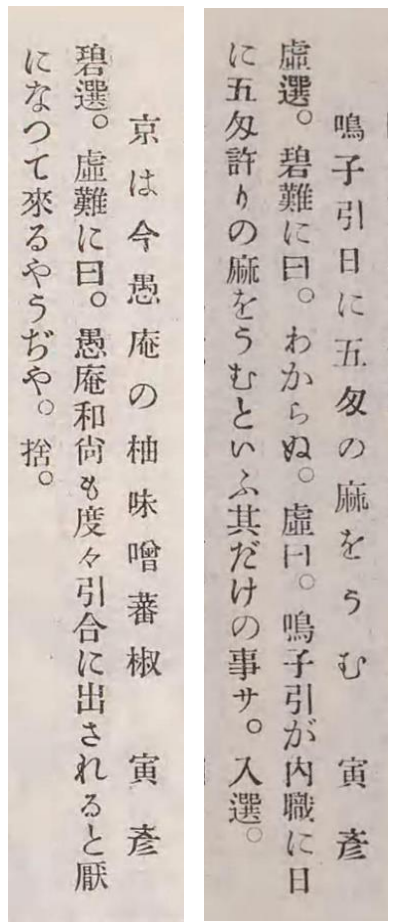 鳴子引日に五匁の麻をうむ　寅彥
虛選。碧難に曰。わからぬ。虛曰。鳴子引が內職に日
に五匁許りの麻をうむといふ其だけの事サ。入選。
京は今愚庵の柚味噌蕃椒　寅彥
碧選。虛難に曰。愚庵和尙も度々引合に出されると厭
になつて來るやうぢや。捨。